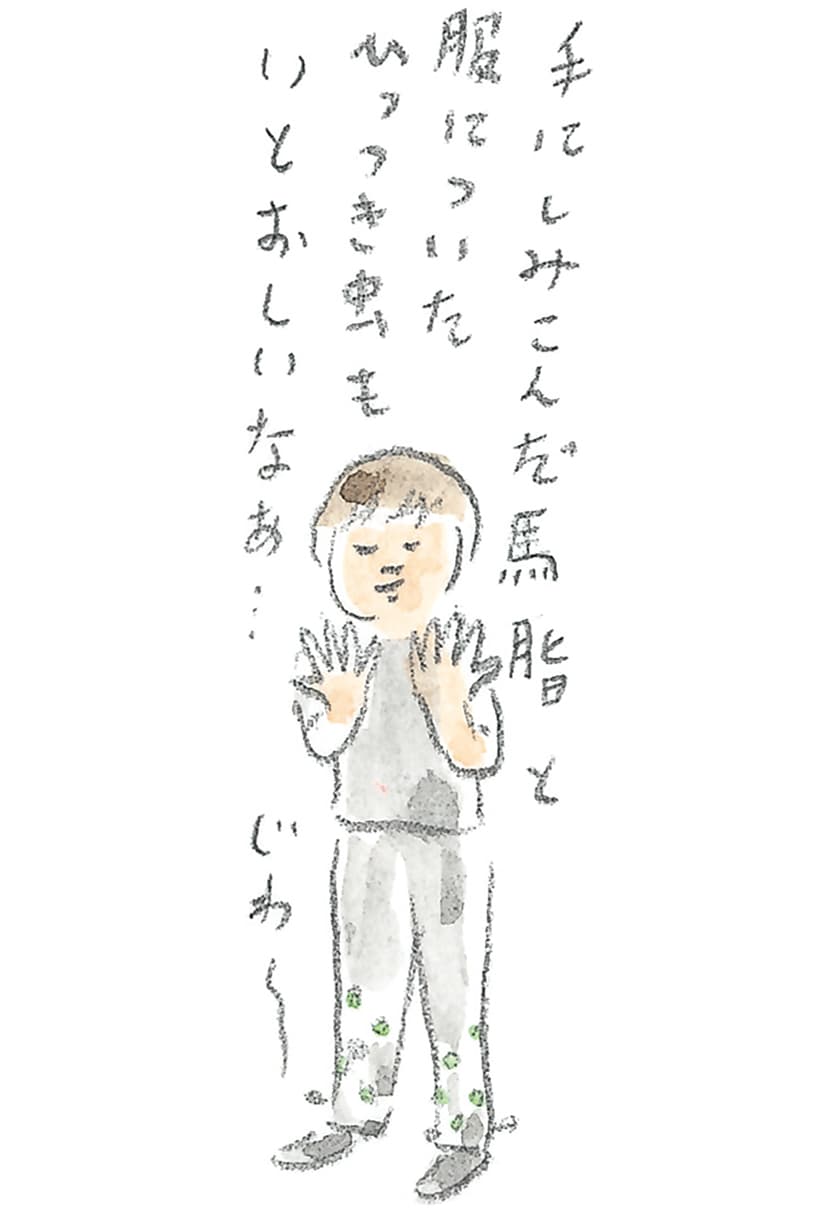 手にしみこんだ馬脂と
服についた
ひっつき虫も
いとおしいなぁ…
じわ〜